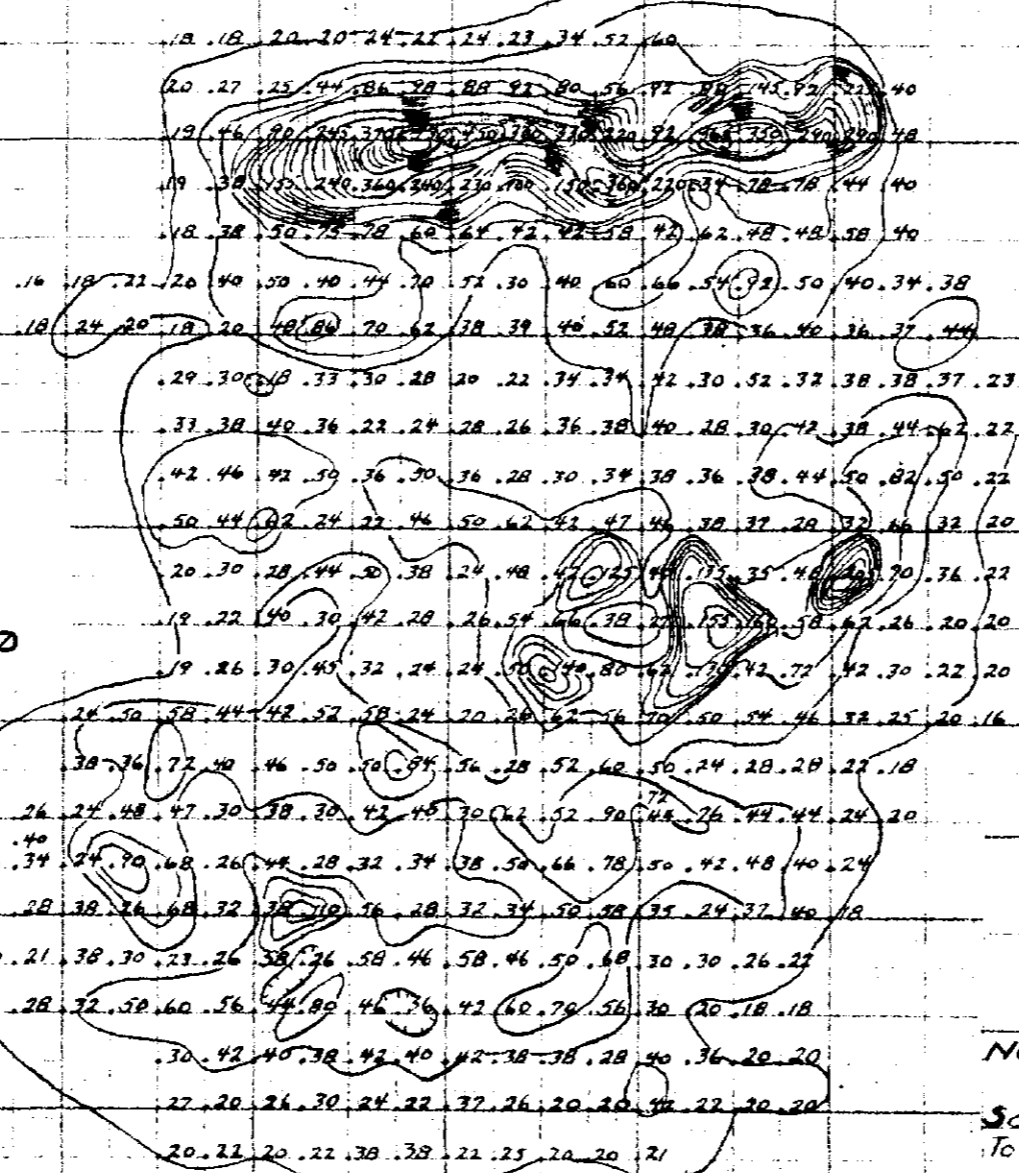 .18 .18 .20 .20 .24 .22 .24 .23 .34 .52 .60
.20 .27 .25 .44 .86 .98 .88 .92 .80 .56 .92 .145 .92 .40
.19 .46 .90 .245 .370 .450 .220 .92 .350 .290 .290 .48
.19 .38 .155 .240 .360 .240 .230 .100 .150 .360 .220 .34 .78 .78 .44 .40
.18 .38 .50 .75 .78 .60 .64 .42 .42 .58 .42 .62 .48 .48 .58 .40
.16 .18 .22 .20 .40 .50 .40 .44 .70 .52 .30 .40 .60 .66 .54 .92 .50 .40 .34 .38
.18 .24 .20 .18 .20 .48 .86 .70 .62 .38 .39 .40 .52 .48 .38 .36 .40 .36 .37 .44
.29 .30 .18 .33 .30 .28 .20 .22 .34 .34 .42 .30 .52 .32 .38 .38 .37 .23
.33 .38 .40 .36 .22 .24 .28 .26 .36 .38 .40 .28 .30 .42 .38 .44 .62 .22
.42 .46 .42 .50 .36 .50 .36 .28 .30 .34 .38 .36 .38 .44 .50 .82 .50 .22
.50 .44 .82 .24 .22 .46 .50 .62 .42 .47 .46 .38 .37 .28 .32 .66 .32 .20
.20 .30 .28 .44 .50 .38 .24 .48 .42 .125 .40 .175 .35 .48 .205 .70 .36 .22
.19 .22 .40 .30 .42 .28 .26 .54 .66 .38 .27 .155 .160 .58 .62 .26 .20 .20
.19 .26 .30 .45 .32 .24 .24 .50 .140 .80 .62 .170 .42 .72 .42 .30 .22 .20
.24 .50 .58 .44 .42 .52 .58 .24 .20 .26 .62 .56 .70 .50 .54 .46 .32 .25 .20 .16
.38 .36 .72 .40 .46 .50 .50 .84 .56 .28 .52 .60 .50 .24 .28 .28 .22 .18
.72
.26 .24 .48 .47 .30 .38 .30 .42 .40 .30 .62 .52 .90 .44 .76 .44 .44 .24 .20
.40
.34 .24 .90 .68 .26 .44 .28 .32 .34 .38 .50 .66 .78 .50 .42 .48 .40 .24
.28 .38 .26 .68 .32 .38 .110 .56 .28 .32 .34 .50 .58 .35 .24 .37 .40 .18
.21 .38 .30 .23 .26 .58 .26 .58 .46 .58 .46 .50 .68 .30 .30 .26 .22
.28 .32 .50 .60 .56 .44 .80 .46 .36 .42 .60 .70 .56 .30 .20 .18 .18
.30 .42 .40 .38 .42 .40 .42 .38 .38 .28 .40 .36 .20 .20
.27 .20 .26 .30 .24 .22 .37 .26 .20 .20 .42 .22 .20 .20
.20 .22 .20 .22 .38 .38 .22 .25 .20 .20 .21
To